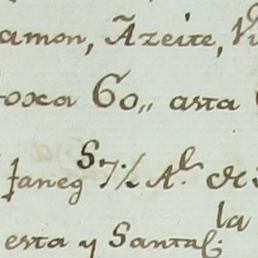 amon, Azeite, Vi
oxa 60,, asta
faneg.s 7½ A.l de
esta y Santa
la